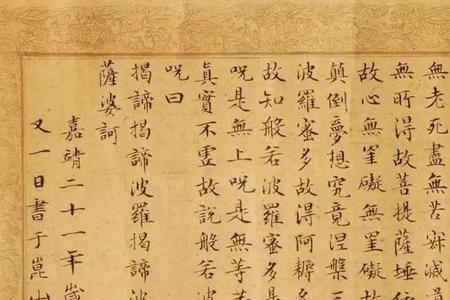 無老死盡無苦寂滅道
無所得故菩提薩埵依
故心無罣礙無罣礙故
顛倒夢想究竟涅槃三
波羅蜜多故得阿耨多
故知般若波羅蜜多是
呪是無上呪是無等等
真實不虛故說般若波
呪曰
揭諦揭諦波羅揭諦波
薩婆訶
嘉靖二十一年歲
又一日書于崑山